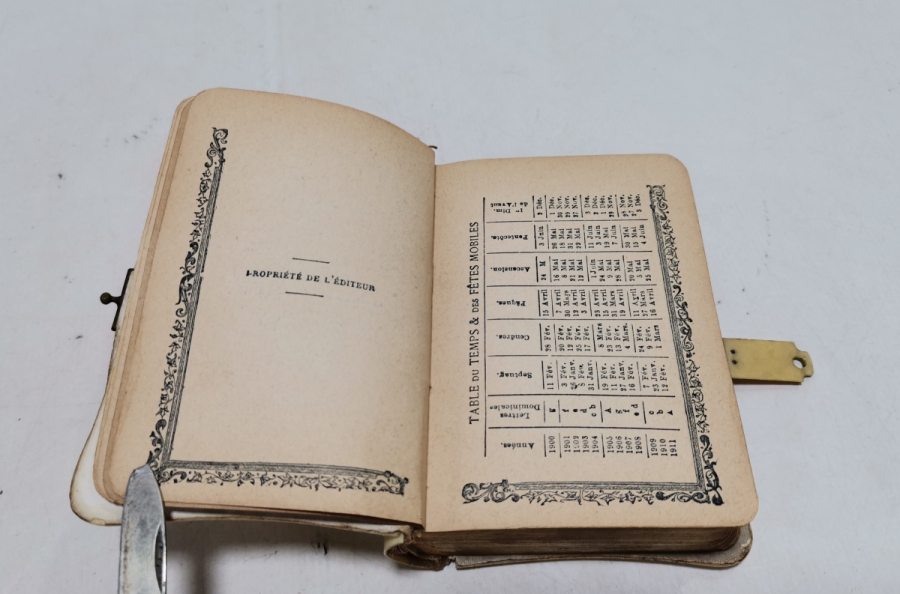 PROPRIÉTÉ DE L'ÉDITEUR
TABLE DU TEMPS & DES FÊTES MOBILES
Années. Lettres Dominicales Septuag. Cendres. Pâques. Ascension. Pentecôte. 1er Dim. de l'Avent
1900 g 11 Fév. 28 Fév. 15 Avril 24 M 3 Juin 2 Déc.
1901 f 3 Fév. 20 Fév. 7 Avril 16 Mai 26 Mai 1 Déc.
1902 e 26 Janv. 12 Fév. 30 Mars 8 Mai 18 Mai 30 Nov.
1903 d 8 Fév. 25 Fév. 12 Avril 21 Mai 31 Mai 29 Nov.
1904 c b 31 Janv. 17 Fév. 3 Avril 12 Mai 22 Mai 27 Nov.
1905 A 19 Fév. 8 Mars 1 Juin 11 Juin 3 Déc.
1906 g 11 Fév. 15 Avril 24 Mai 3 Juin 2 Déc.
1907 f 27 Janv. 13 Fév. 31 Mars 9 Mai 19 Mai 1 Déc.
1908 e d 16 Fév. 4 Mars. 19 Avril 28 Mai 7 Juin 29 Nov.
1909 c 7 Fév. 24 Fév. 11 Avril 20 Mai 30 Mai Nov.
1910 b 23 Janv. 9 Fév. 27 Mars 5 Mai 15 Mai 27 Nov.
1911 A 12 Fév. 1 Mars 16 Avril 25 Mai 4 Juin 3 Déc.